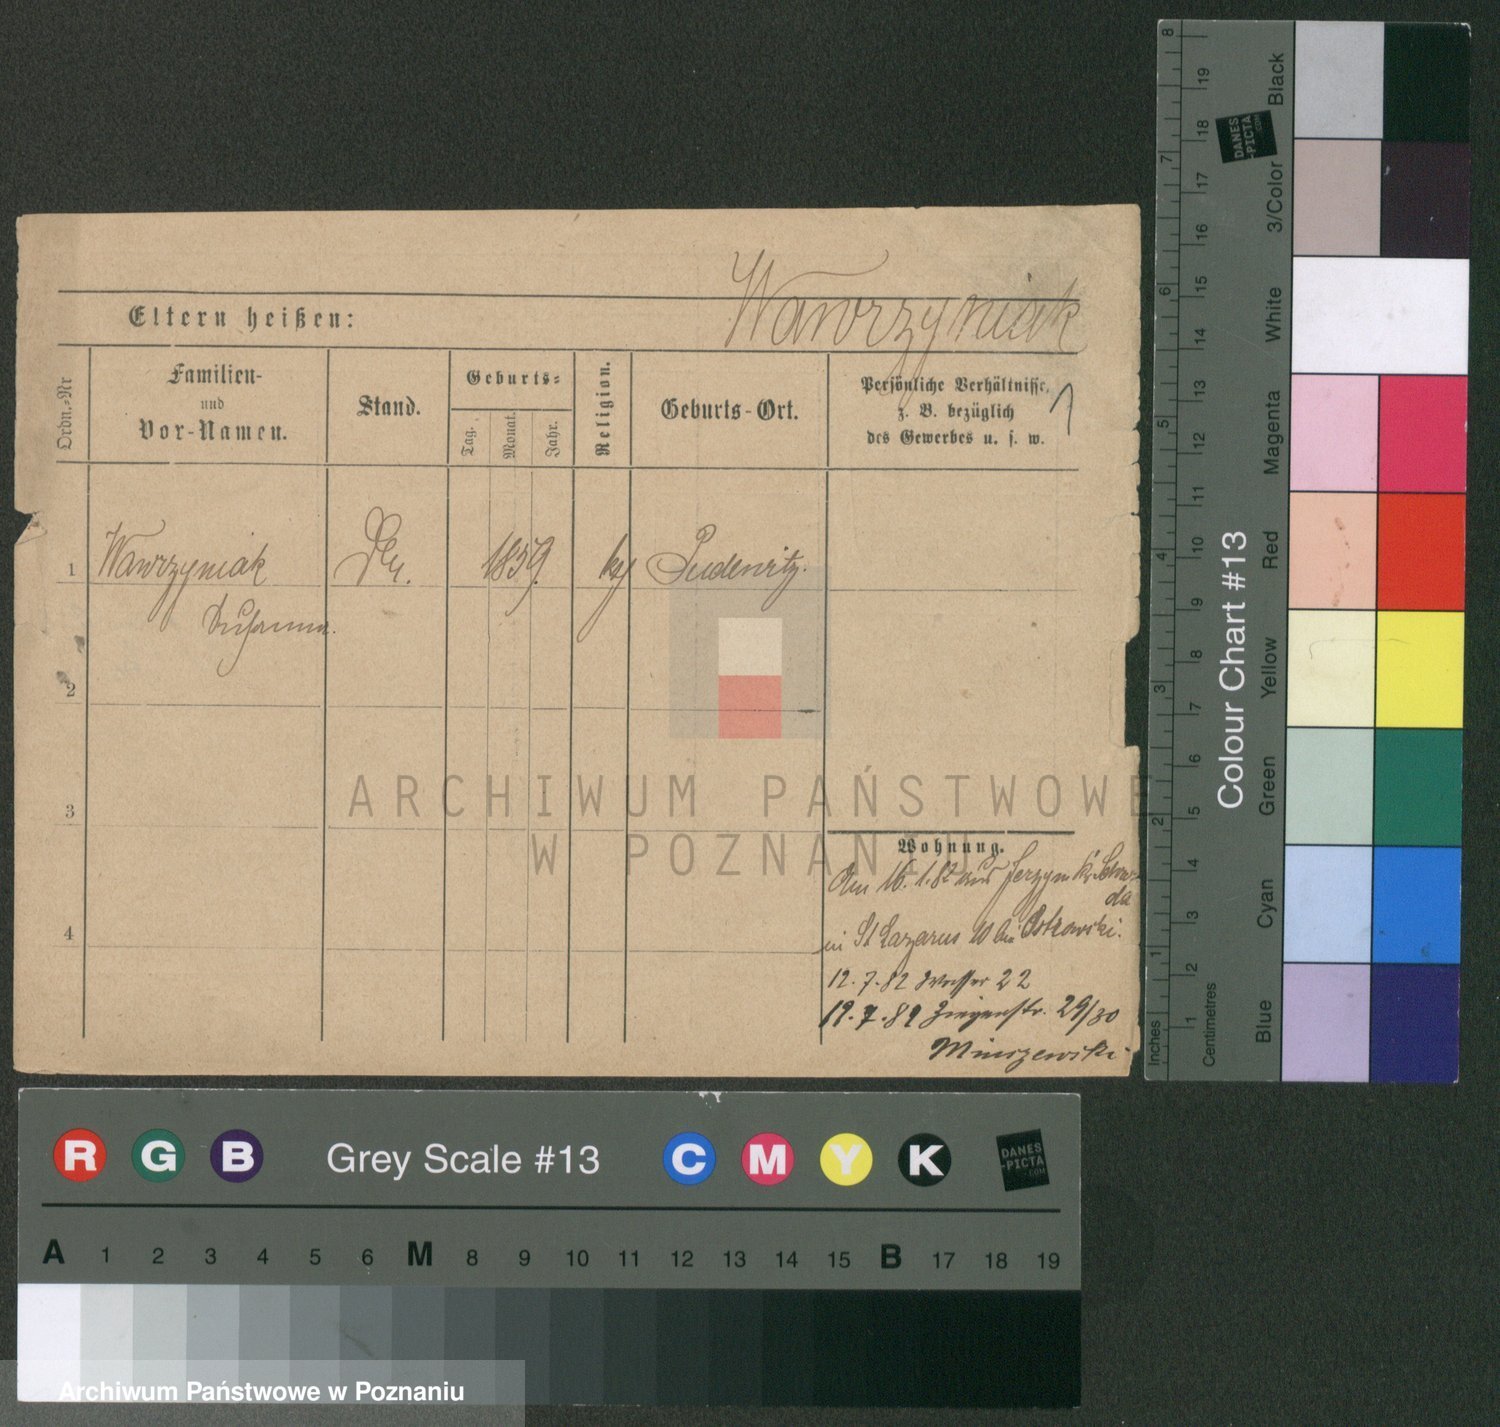 Wawrzyniak
Eltern heißen:
Ordn.-Nr
Familien-
und
Vor-Namen.
Stand.
Geburts-
Tag.
Monat.
Jahr.
Religion.
Geburts-Ort.
Persönliche Verhältnisse,
z. B. bezüglich
des Gewerbes u. s. w.
1
Wawrzyniak
1859.
Pudewitz.
Susanna.
2
3
4
Wohnung.
Am 16.1.82 aus Jerzyn Kr. Schro
da
in St Lazarus 10 bei Ostrowski.
12.7.82 Wasser 22
19.7.82 Ziegenstr. 29/30
ARCHIWUM PAŃSTWOWE
W POZNANIU
Colour Chart #13
Black
3/Color
White
Magenta
Red
Yellow
Green
Cyan
Blue
Inches 1 2 3 4 5 6 7 8
Centimetres 1 2 3 4 5 6 7 8 9 10 11 12 13 14 15 16 17 18 19
DANES
-PICTA
.COM
R G B Grey Scale #13 C M Y K
DANES
-PICTA
.COM
A 1 2 3 4 5 6 M 8 9 10 11 12 13 14 15 B 17 18 19
Archiwum Państwowe w Poznaniu